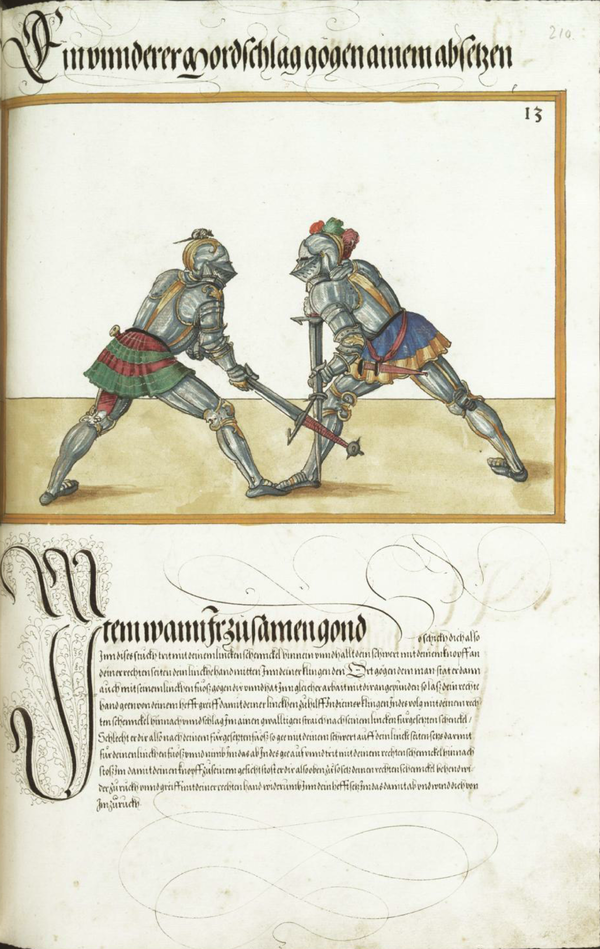 Ein annderer Mordschlag gögen ainem absetzen
210.
13
Item wann Jr zusamen gond so schick dich also
Jnn dises stuckh trit mit deinem lincken schennckel hinnein vnnd halt dein schwert mit deinem knopff an
deiner rechten seiten dein linckhe hand mitten Jnn deiner klingen den Ort gögen dem man stat er dann
auch mit seinem linckhen fuoß gögen dir vnnd hat Jnn gleicher arbait mit dir angepunden so laß dein rechte
hand gen von deinem hefft greiff damit deiner linckhen zu hilff Jn deiner klingen Jn des volg mit deinem rech
ten schennckel hinnach vnnd schlag Jm ainen gwalltigen straich nach seinem lincken fürgesetzten schenckel /
Schlecht er dir also nach deinem fürgesetzten fuoß so ger mit deinem schwert auf dein linckh seiten setz es darmit
für deinen linckhen fuoß vnnd nimb Jm das ab Jn des gee auf vnnd trit mit deinem rechten schennckel hinnach
stos Jm damit deinen knopff zu seinem gesicht stost er dir also oben zu so setz deinen rechten schennckel behend wi
der zurückh vnnd greiff mit deiner rechten hand widerumb Jnn dein hefft setz Jm das damit ab vnnd wind dich von
Jm zuruckh